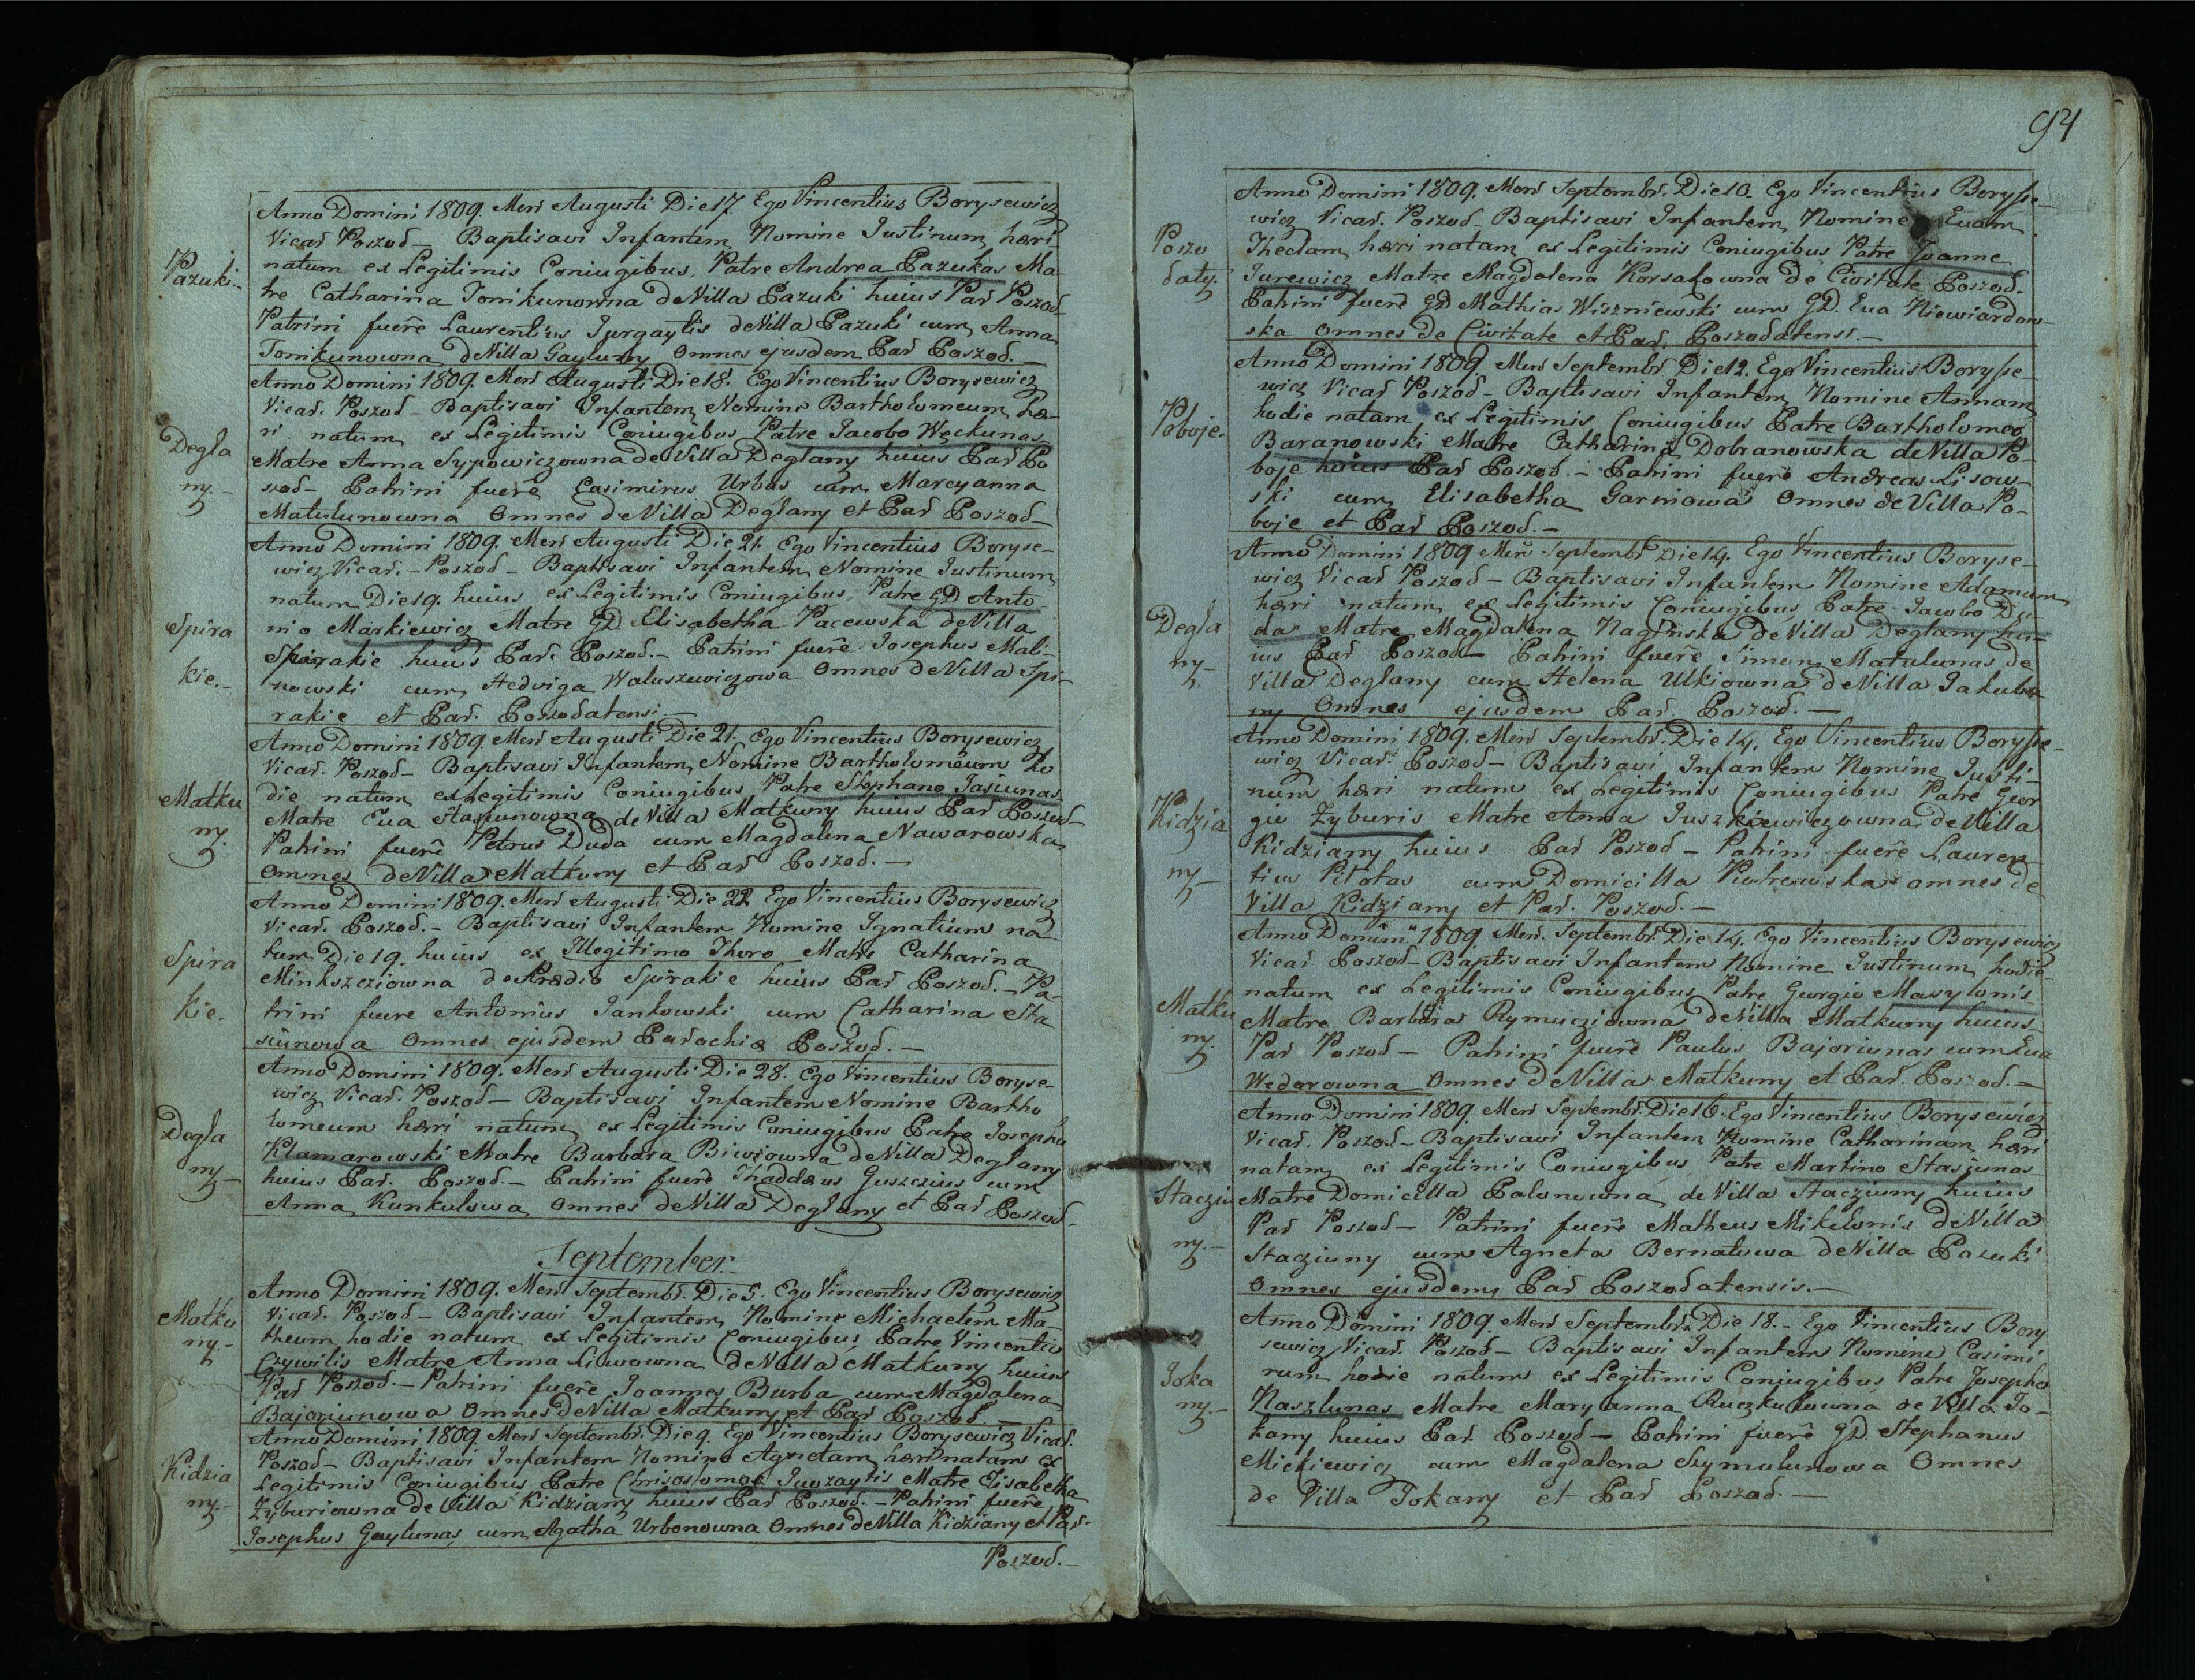 Pazuki.-
Anno Domini 1809. Mens Augusti Die 17. Ego Vincentius Borysewicz
Vicar Poszod- Baptisavi Infantem Nomine Justinum, hæri
natum ex Legitimis Coniugibus, Patre Andrea Pazukas Ma-
tre Catharina Tonikunowna de Villa Pazuki huius Par Poszod-
Patrini fuere Laurentius Jurgaytis de Villa Pazuki cum Anna
Tonikunowna de Villa Gayluny Omnes ejusdem Par Poszod.-
Degla
ny.-
Anno Domini 1809. Mens Augusti Die 18. Ego Vincentius Borysewicz
Vicar. Poszod- Baptisavi Infantem Nomine Bartholomeum hæ-
ri natum ex Legitimis Coniugibus Patre Jacobo Węckunas
Matre Anna Sypowiczowna de Villa Deglany huius Par Po
szod- Patrini fuere Casimirus Urbas cum Marcyanna
Matulunowna Omnes de Villa Deglany et Par Poszod-
Spira
kie.-
Anno Domini 1809. Mens Augusti Die 21. Ego Vincentius Boryse-
wicz Vicar.- Poszod- Baptisavi Infantem Nomine Justinum
natum Die 19. huius ex Legitimis Coniugibus, Patre GD Anto
nio Markiewicz Matre GD Elisabetha Pacewska de Villa
Spirakie huius Par. Poszod.- Patrini fuere Josephus Mali-
nowski cum Hedviga Waluszewiczowa Omnes de Villa Spi-
rakie et Par. Poszodatensi.-
Matku
ny.
Anno Domini 1809. Mens Augusti Die 21. Ego Vincentius Borysewicz
Vicar. Poszod- Baptisavi Infantem Nomine Bartholomeum ho
die natum ex Legitimis Coniugibus Patre Stephano Jasiunas
Matre Eua Stasiunowna de Villa Matkuny huius Par Poszod
Patrini fuere Petrus Duda cum Magdalena Nawarowska
Omnes de Villa Matkuny et Par Poszod.-
Spira
kie.
Anno Domini 1809. Mens Augusti Die 22 Ego Vincentius Borysewicz
Vicar. Poszod.- Baptisavi Infantem Nomine Ignatium na-
tum Die 19. huius ex Illegitimo Thoro Matre Catharina
Minkszeziowna de Prædio Spirakie huius Par Poszod.- Pa-
trini fuere Antonius Jankowski cum Catharina Sta
siunowa Omnes ejusdem Parochiæ Poszod.-
Degla
ny-
Anno Domini 1809. Mens Augusti Die 28. Ego Vincentius Boryse-
wicz Vicar. Poszod- Baptisavi Infantem Nomine Bartho
lomeum hæri natum ex Legitimis Coniugibus Patre Josepho
Klamarowski Matre Barbara Biwiowna de Villa Deglany
huius Par. Poszod.- Patrini fuere Thaddæus Guszczius cum
Anna Kunkulowa Omnes de Villa Deglany et Par Poszod-
September.
Matku
ny.-
Anno Domini 1809. Mens Septembr. Die 5. Ego Vincentius Borysewicz
Vicar. Poszod- Baptisavi Infantem Nomine Michaelem Ma-
theum hodie natum ex Legitimis Coniugibus, Patre Vincentio
Czywilis Matre Anna Liwowna de Villa Matkuny huius
Par Poszod.- Patrini fuere Joannes Burba cum Magdalena
Bajoriunowa Omnes de Villa Matkuny et Par Poszod.
Kidzia
ny.-
Anno Domini 1809. Mens Septembr. Die 9. Ego Vincentius Borysewicz Vicar.
Poszod- Baptisavi Infantem Nomine Agnetam hæri natam ex
Legitimis Coniugibus Patre Chrisostomo Juozaytis Matre Elisabetha
Zyburiowna de Villa Kidziany huius Par Poszod.- Patrini fuere
Josephus Gaylunas, cum Agatha Urbonowna Omnes de Villa Kidziany et Par.
Poszod.-
94
Poszo
daty.
Anno Domini 1809. Mens Septembr. Die 10. Ego Vincentius Boryse-
wicz Vicar. Poszod- Baptisavi Infantem Nomine Euam
Theclam, hæri natam ex Legitimis Coniugibus, Patre Joanne
Jurewicz Matre Magdalena Korsakowna de Civitate Poszod.
Patrini fuere GD Mathias Wiszniewski cum GD. Eua Niewiardow-
ska Omnes de Civitate et Par. Poszodatensi.-
Poboje.
Anno Domini 1809 Mens Septembr Die 12. Ego Vincentius Boryse-
wicz Vicar Poszod- Baptisavi Infantem Nomine Annam
hodie natam ex Legitimis Coniugibus Patre Bartholomeo
Baranowski Matre Catharina Dobranowska de Villa Po-
boje huius Par Poszod.- Patrini fuere Andreas Lisow-
ski cum Elisabetha Garniowa Omnes de Villa Po-
boje et Par Poszod.-
Degla
ny-
Anno Domini 1809 Mens Septembr Die 14. Ego Vincentius Boryse-
wicz Vicar Poszod- Baptisavi Infantem Nomine Adamum
hæri natum ex Legitimis Coniugibus Patre Jacobo Du-
da Matre Magdalena Naginska de Villa Deglany hu-
ius Par Poszod- Patrini fuere Simon Matulunas de
Villa Deglany cum Helena Ulkiowna de Villa Jakubo
ny Omnes ejusdem Par. Poszod.-
Kidzia
ny-
Anno Domini 1809. Mens Septembr. Die 14. Ego Vincentius Boryse-
wicz Vicar. Poszod- Baptisavi Infantem Nomine Justi-
num hæri natum ex Legitimis Coniugibus Patre Geor
gio Zyburis Matre Anna Juszkiewiczowna de Villa
Kidziany huius Par Poszod- Patrini fuere Lauren-
tius Pilotas cum Domicilla Piotrowska omnes de
Villa Kidziany et Par. Poszod.-
Matku
ny.
Anno Domini 1809. Mens. Septembr. Die 14. Ego Vincentius Borysewicz
Vicar. Poszod- Baptisavi Infantem Nomine Justinum, hodie
natum ex Legitimis Coniugibus Patre Georgio Masylonis
Matre Barbara Rymucziowna de Villa Matkuny huius
Par Poszod- Patrini fuere Paulus Bajoriunas cum Eua
Wedorowna Omnes de Villa Matkuny et Par. Poszod.-
Stacziu
ny.-
Anno Domini 1809. Mens Septembr. Die 16. Ego Vincentius Borysewicz
Vicar. Poszod- Baptisavi Infantem Nomine Catharinam hæri
natam ex Legitimis Coniugibus, Patre Martino Stasiunas
Matre Domicilla Palonowna de Villa Stacziuny huius
Par Poszod- Patrini fuere Matheus Mikelonis de Villa
Stacziuny cum Agneta Bernatowa de Villa Pazuki
Omnes ejusdem Par Poszodatensis.-
Joka
ny.-
Anno Domini 1809. Mens Septembr. Die 18.- Ego Vincentius Bory
sewicz Vicar. Poszod- Baptisavi Infantem Nomine Casimi
rum hodie natum ex Legitimis Coniugibus Patre Josepho
Naszlunas Matre Maryanna Ruczkulowna de Villa Jo-
kany huius Par. Poszod- Patrini fuere GD. Stephanus
Mickiewicz cum Magdalena Szymulunowa Omnes
de Villa Jokany et Par Poszod.-